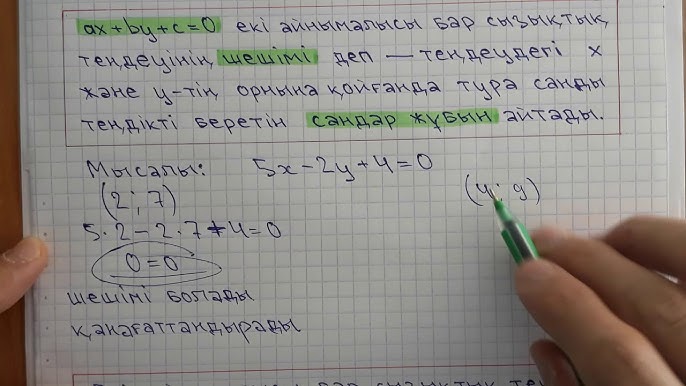 ax+by+c=0 екі айнымалысы бар сызықтық
теңдеуінің шешімі деп — теңдеудегі х
және у-тің орнына қойғанда тура санды
теңдікті беретін сандар жұбын айтады.
Мысалы: 5x-2y+4=0
(2; 7) (4; 9)
5·2-2·7+4=0
0=0
шешімі болады
қанағаттандырады